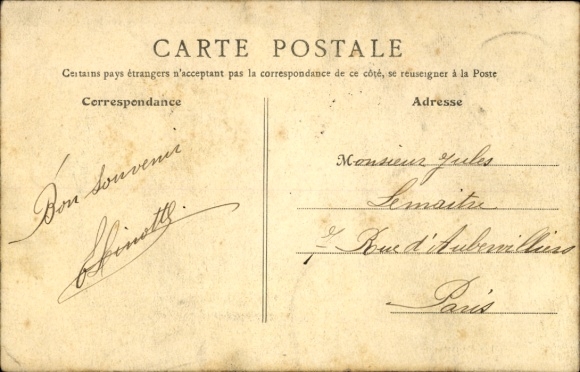 CARTE POSTALE
Certains pays étrangers n'acceptant pas la correspondance de ce côté, se renseigner à la Poste
Correspondance
Bon souvenir
Adresse
Monsieur Jules
Lemaitre
7 Rue d'Aubervilliers
Paris